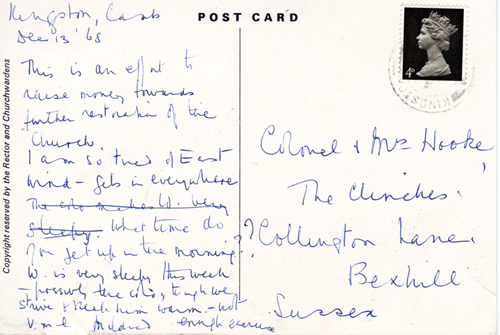 Kingston, Camb
Dec 13 '68
POST CARD
4D
KINGSTO
This is an effort to
raise money towards
further restoration of the
Church.
I am so tired of East
wind - gets in everywhere
sleepy. What time do
you get up in the morning?
W. is very sleepy this week
- possibly the cold, though we
strive & keep him warm - not
enough exercise
V.m.l Mildred
Colonel & Mrs Hooke
The Clinches
Collington Lane
Bexhill
Sussex
Copyright reserved by the Rector and Churchwardens